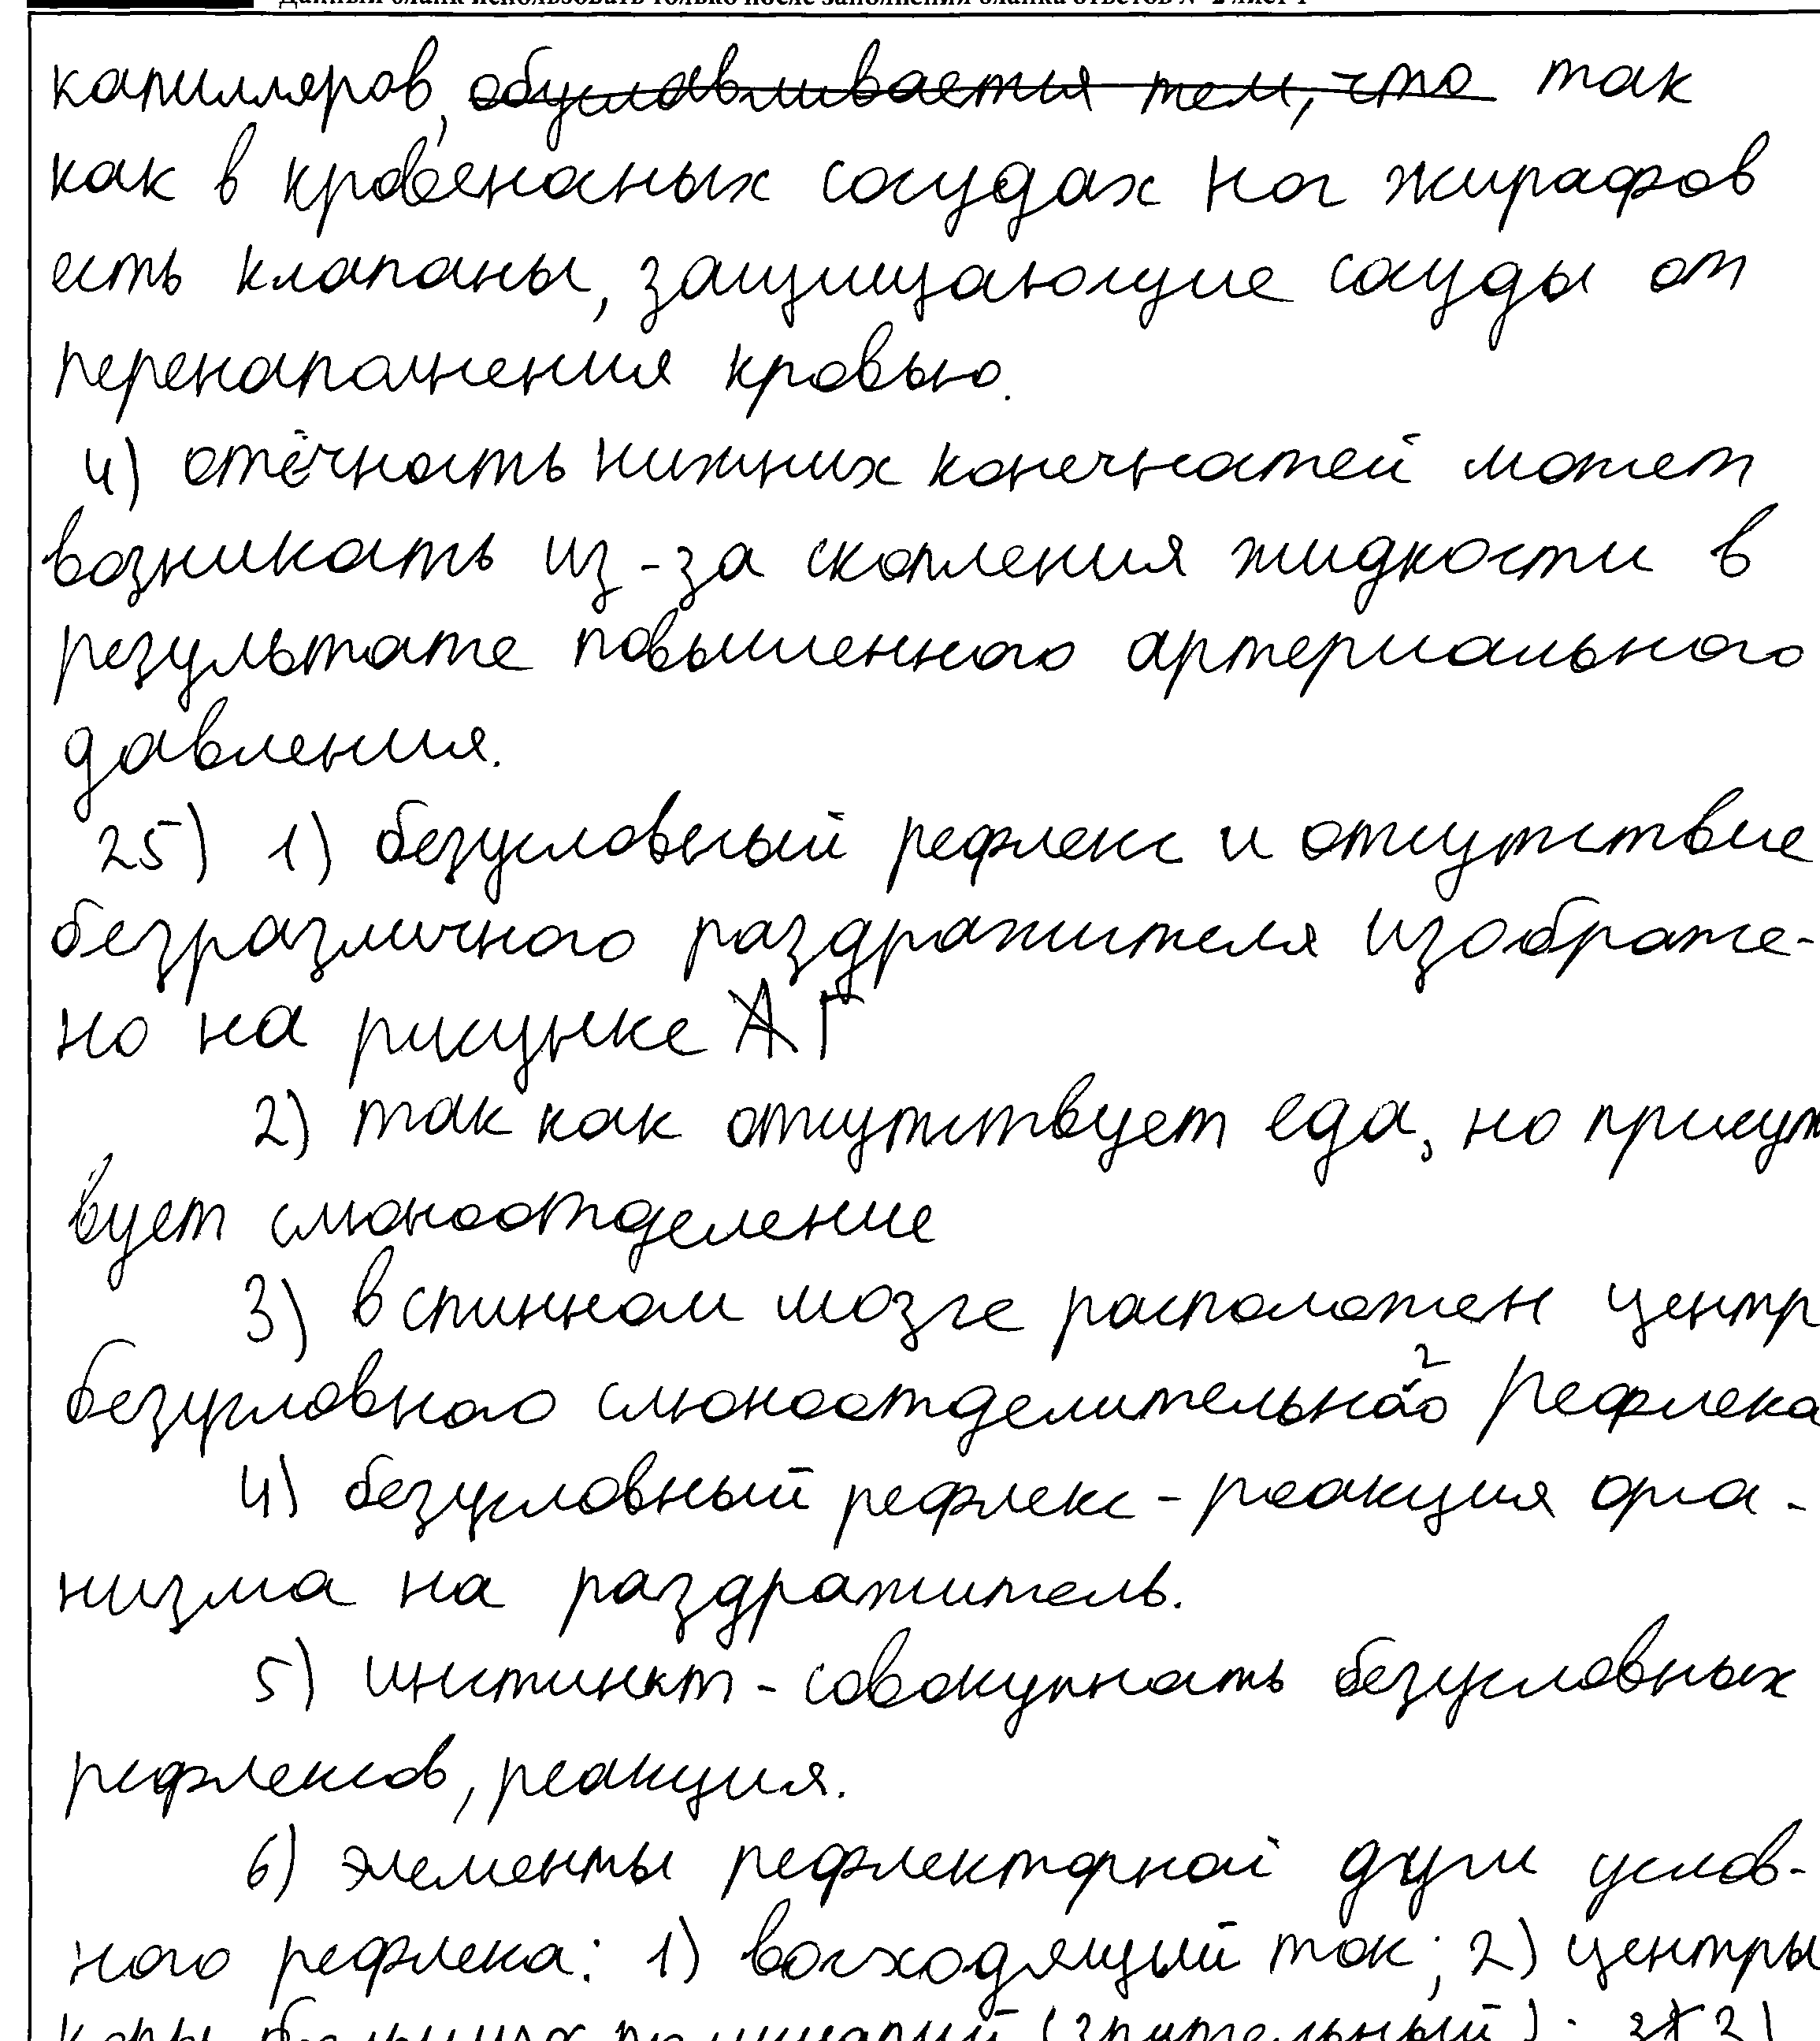 Данный бланк использовать только после заполнения бланка ответов № 2 лист 1
капилляров, ~~обуславливается тем, что~~ так
как в кровеноных сосудах ног жирафов
есть клапаны, защищающие сосуды от
перенаполнения кровью.
4) отёчность нижних конечностей может
возникать из-за скопления жидкости в
результате повышенного артериального
давления.
25) 1) безусловный рефлекс и отсутствие
безразличного раздражителя изображе-
но на рисунке ~~А~~ Г
2) так как отсутствует еда, но присут
вует слюноотделение
3) в спинном мозге расположен центр
безусловного слюноотделительного рефлекса
4) безусловный рефлекс - реакция орга-
низма на раздражитель.
5) инстинкт - совокупность безусловных
рефлексов, реакция.
6) элементы рефлекторной дуги услов-
ного рефлекса: 1) восходящий ток; 2) центры
коры больших полушарий (зрительный); 3)